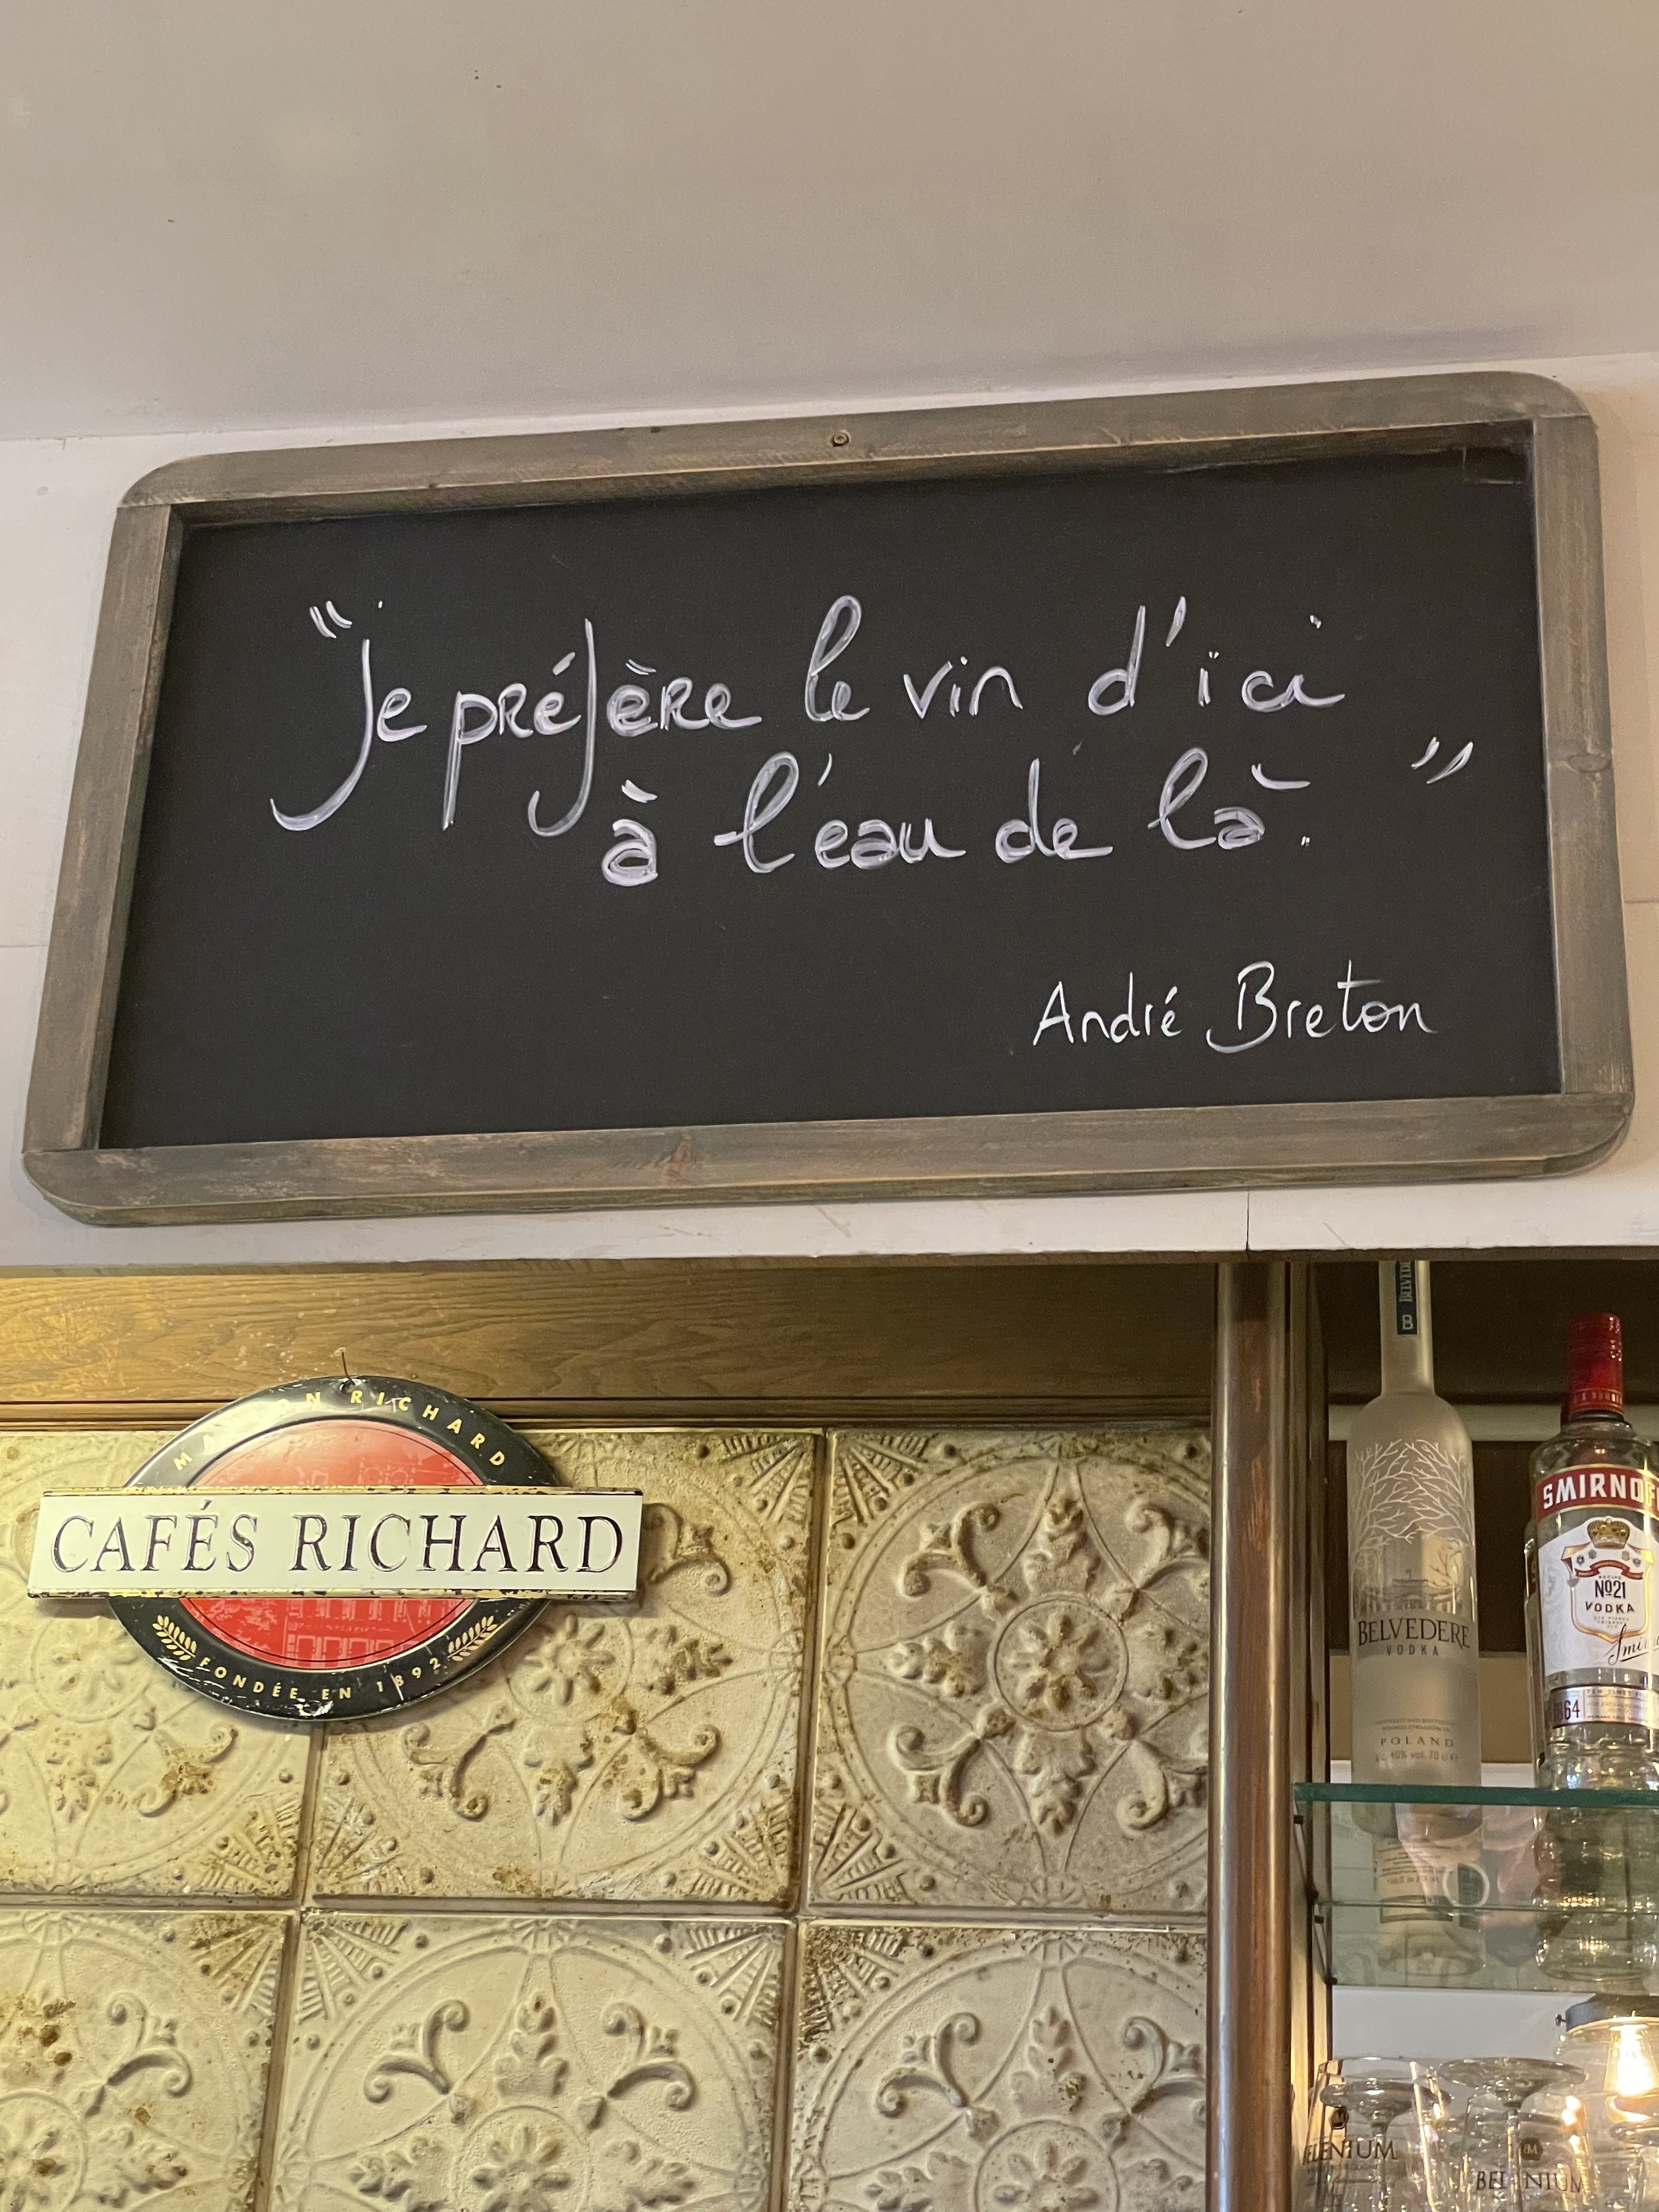 “je préfère le vin d'ici
à l'eau de là.”
André Breton
MAISON RICHARD
CAFÉS RICHARD
FONDÉE EN 1892
BELVEDERE
VODKA
POLAND
40% vol. 70 cl
SMIRNOFF
No21
VODKA
1864
BELENIUM